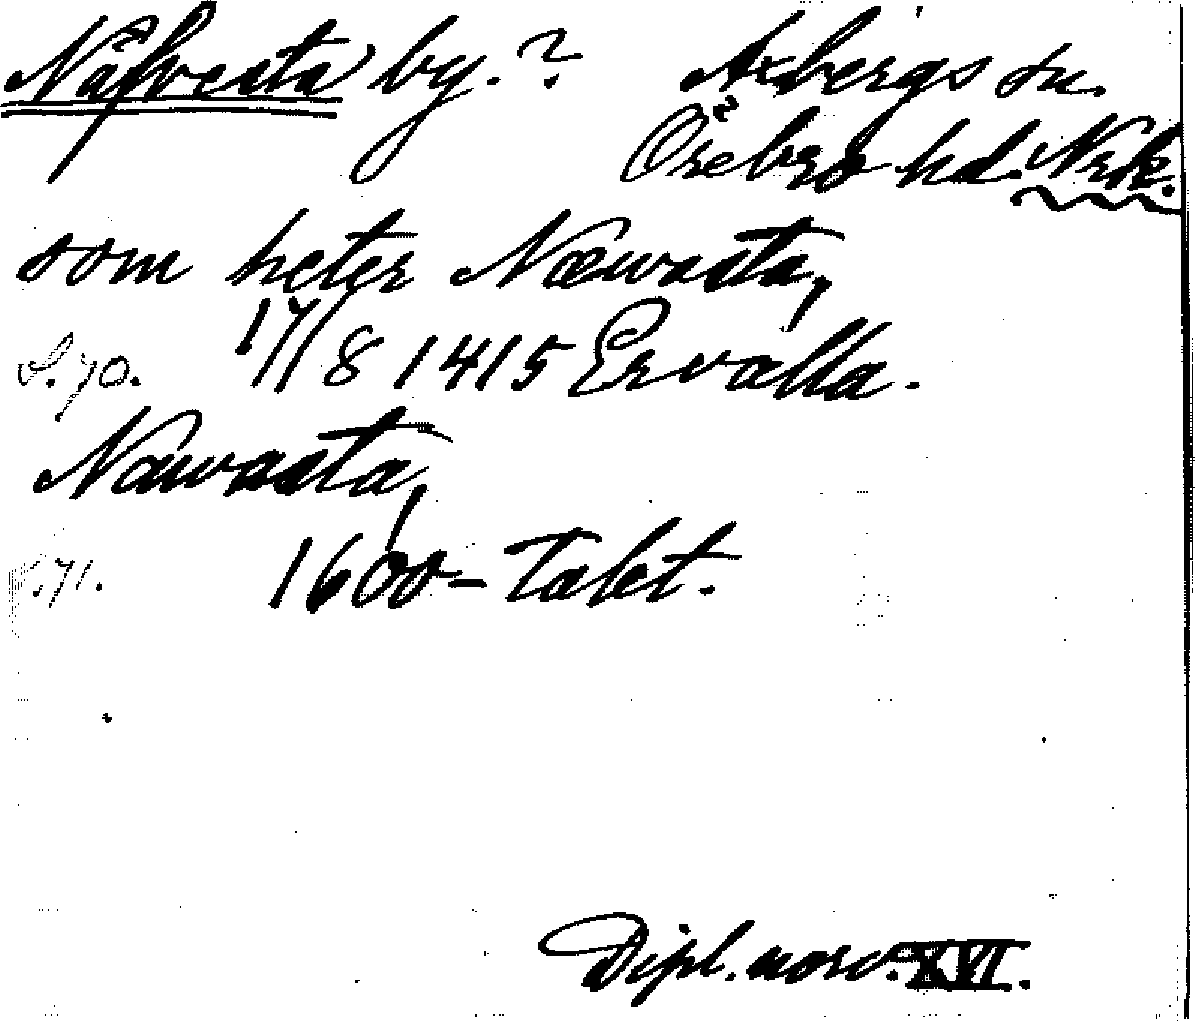 Nåfvesta by.? Axbergs sn.
Örebro hd. Nrk.
som heter Næwasta,
S. 70. 17/8 1415 Ervalla.
Nawasta,
S. 71. 1600-talet.
Dipl. norv. XVI.